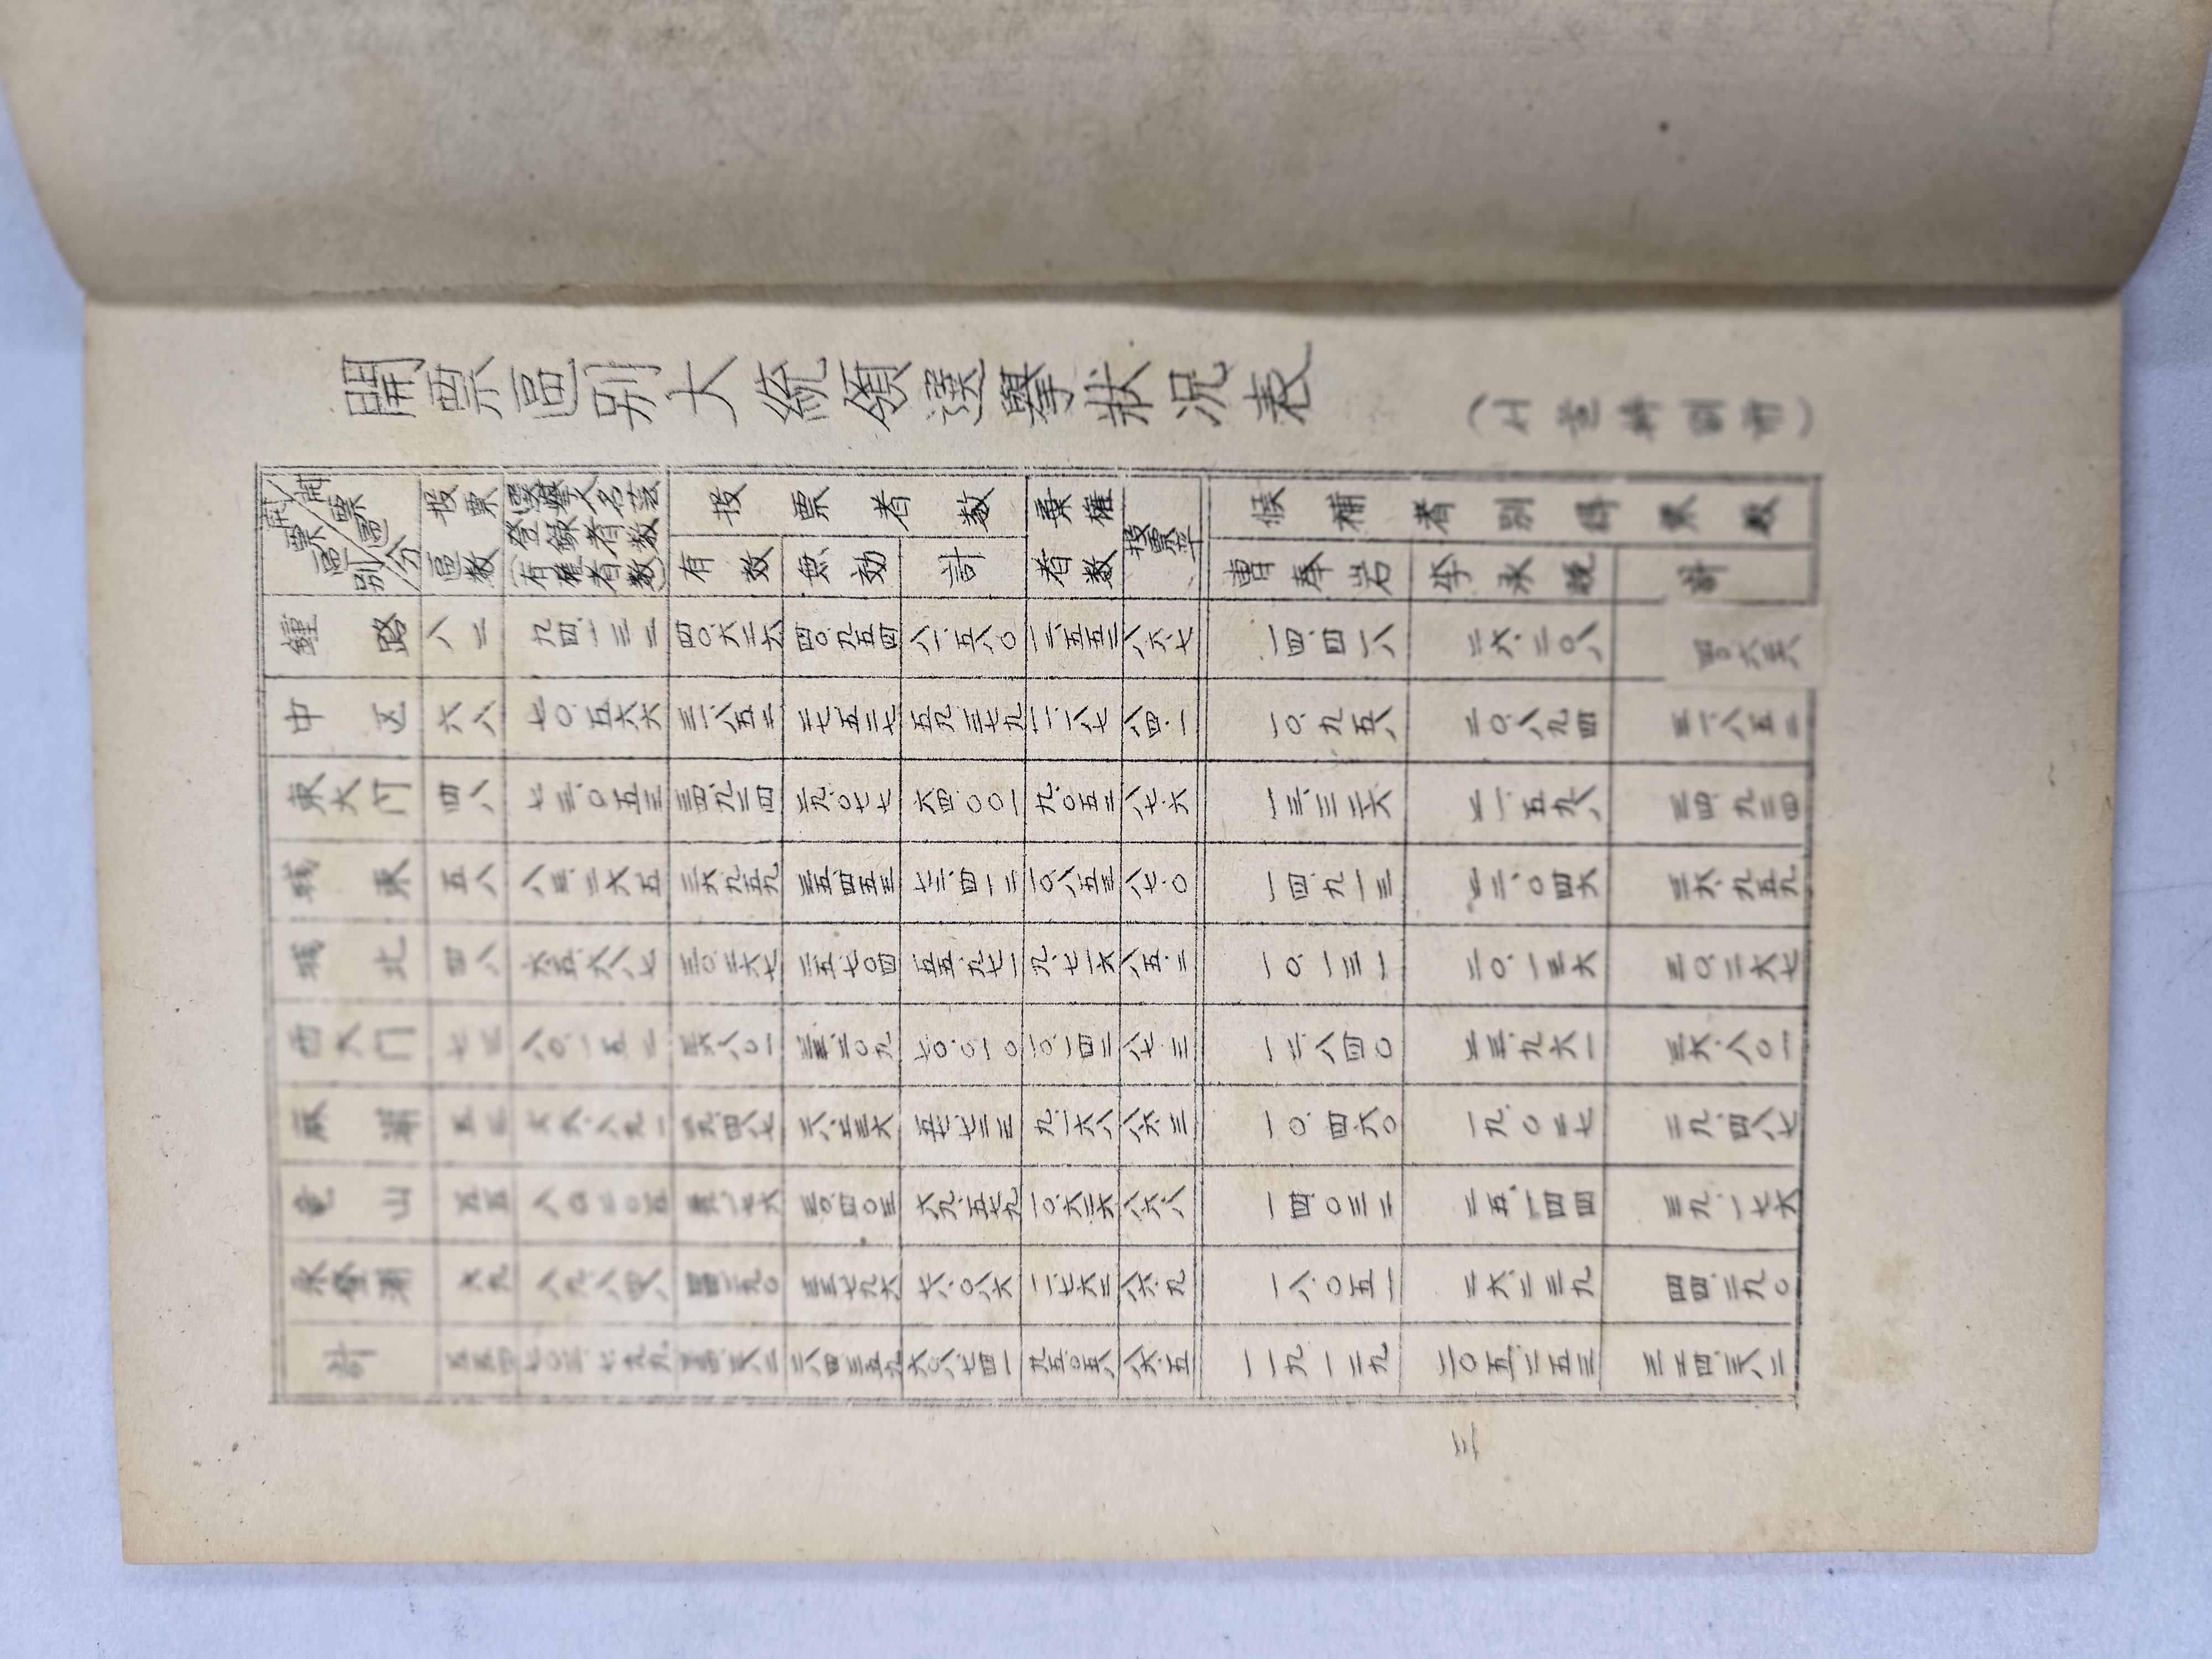 開票區別大統領選擧狀况表
(서울特別市)
開票區分 開票區別 投票區數 選擧人名簿登錄者數(有權者數) 投票者數 棄權者數 投票率 候補者別得票數
有效 無効 計 曺奉岩 李承晩 計
鍾路 八二 九四.一三二 四〇.六二六 四〇.九五四 八一.五八〇 一二.五五二 八六.七 一四.四一八 二六.二〇八 四〇.六二六
中区 六八 七〇.五六六 三一.八五二 二七.五二七 五九.三七九 一一.一八七 八四.一 一〇.九五八 二〇.八九四 三一.八五二
東大门 四八 七三.〇五三 三四.九二四 二九.〇七七 六四.〇〇一 九.〇五二 八七.六 一三.三二六 二一.五九八 三四.九二四
城東 五八 八三.二六五 三六.九五九 三五.四五三 七二.四一二 一〇.八五三 八七.〇 一四.九一三 二二.〇四六 三六.九五九
城北 四八 六五.六八七 三〇.二六七 二五.七〇四 五五.九七一 九.七一六 八五.二 一〇.一三一 二〇.一三六 三〇.二六七
西大门 七三 八〇.一五二 三六.八〇一 三三.二〇九 七〇.〇一〇 一〇.一四二 八七.三 一二.八四〇 二三.九六一 三六.八〇一
麻浦 五三 六六.八九一 二九.四八七 二八.二三六 五七.七二三 九.一六八 八六.三 一〇.四六〇 一九.〇二七 二九.四八七
竜山 五五 八〇.二〇五 三九.一七六 三〇.四〇三 六九.五七九 一〇.六二六 八六.八 一四.〇三二 二五.一四四 三九.一七六
永登浦 六九 八九.八四八 四四.二九〇 三三.七九六 七八.〇八六 一一.七六二 八六.九 一八.〇五一 二六.二三九 四四.二九〇
計 五五四 七〇三.七九九 三二四.三八二 二八四.三五九 六〇八.七四一 九五.〇五八 八六.五 一一九.一二九 二〇五.二五三 三二四.三八二
三